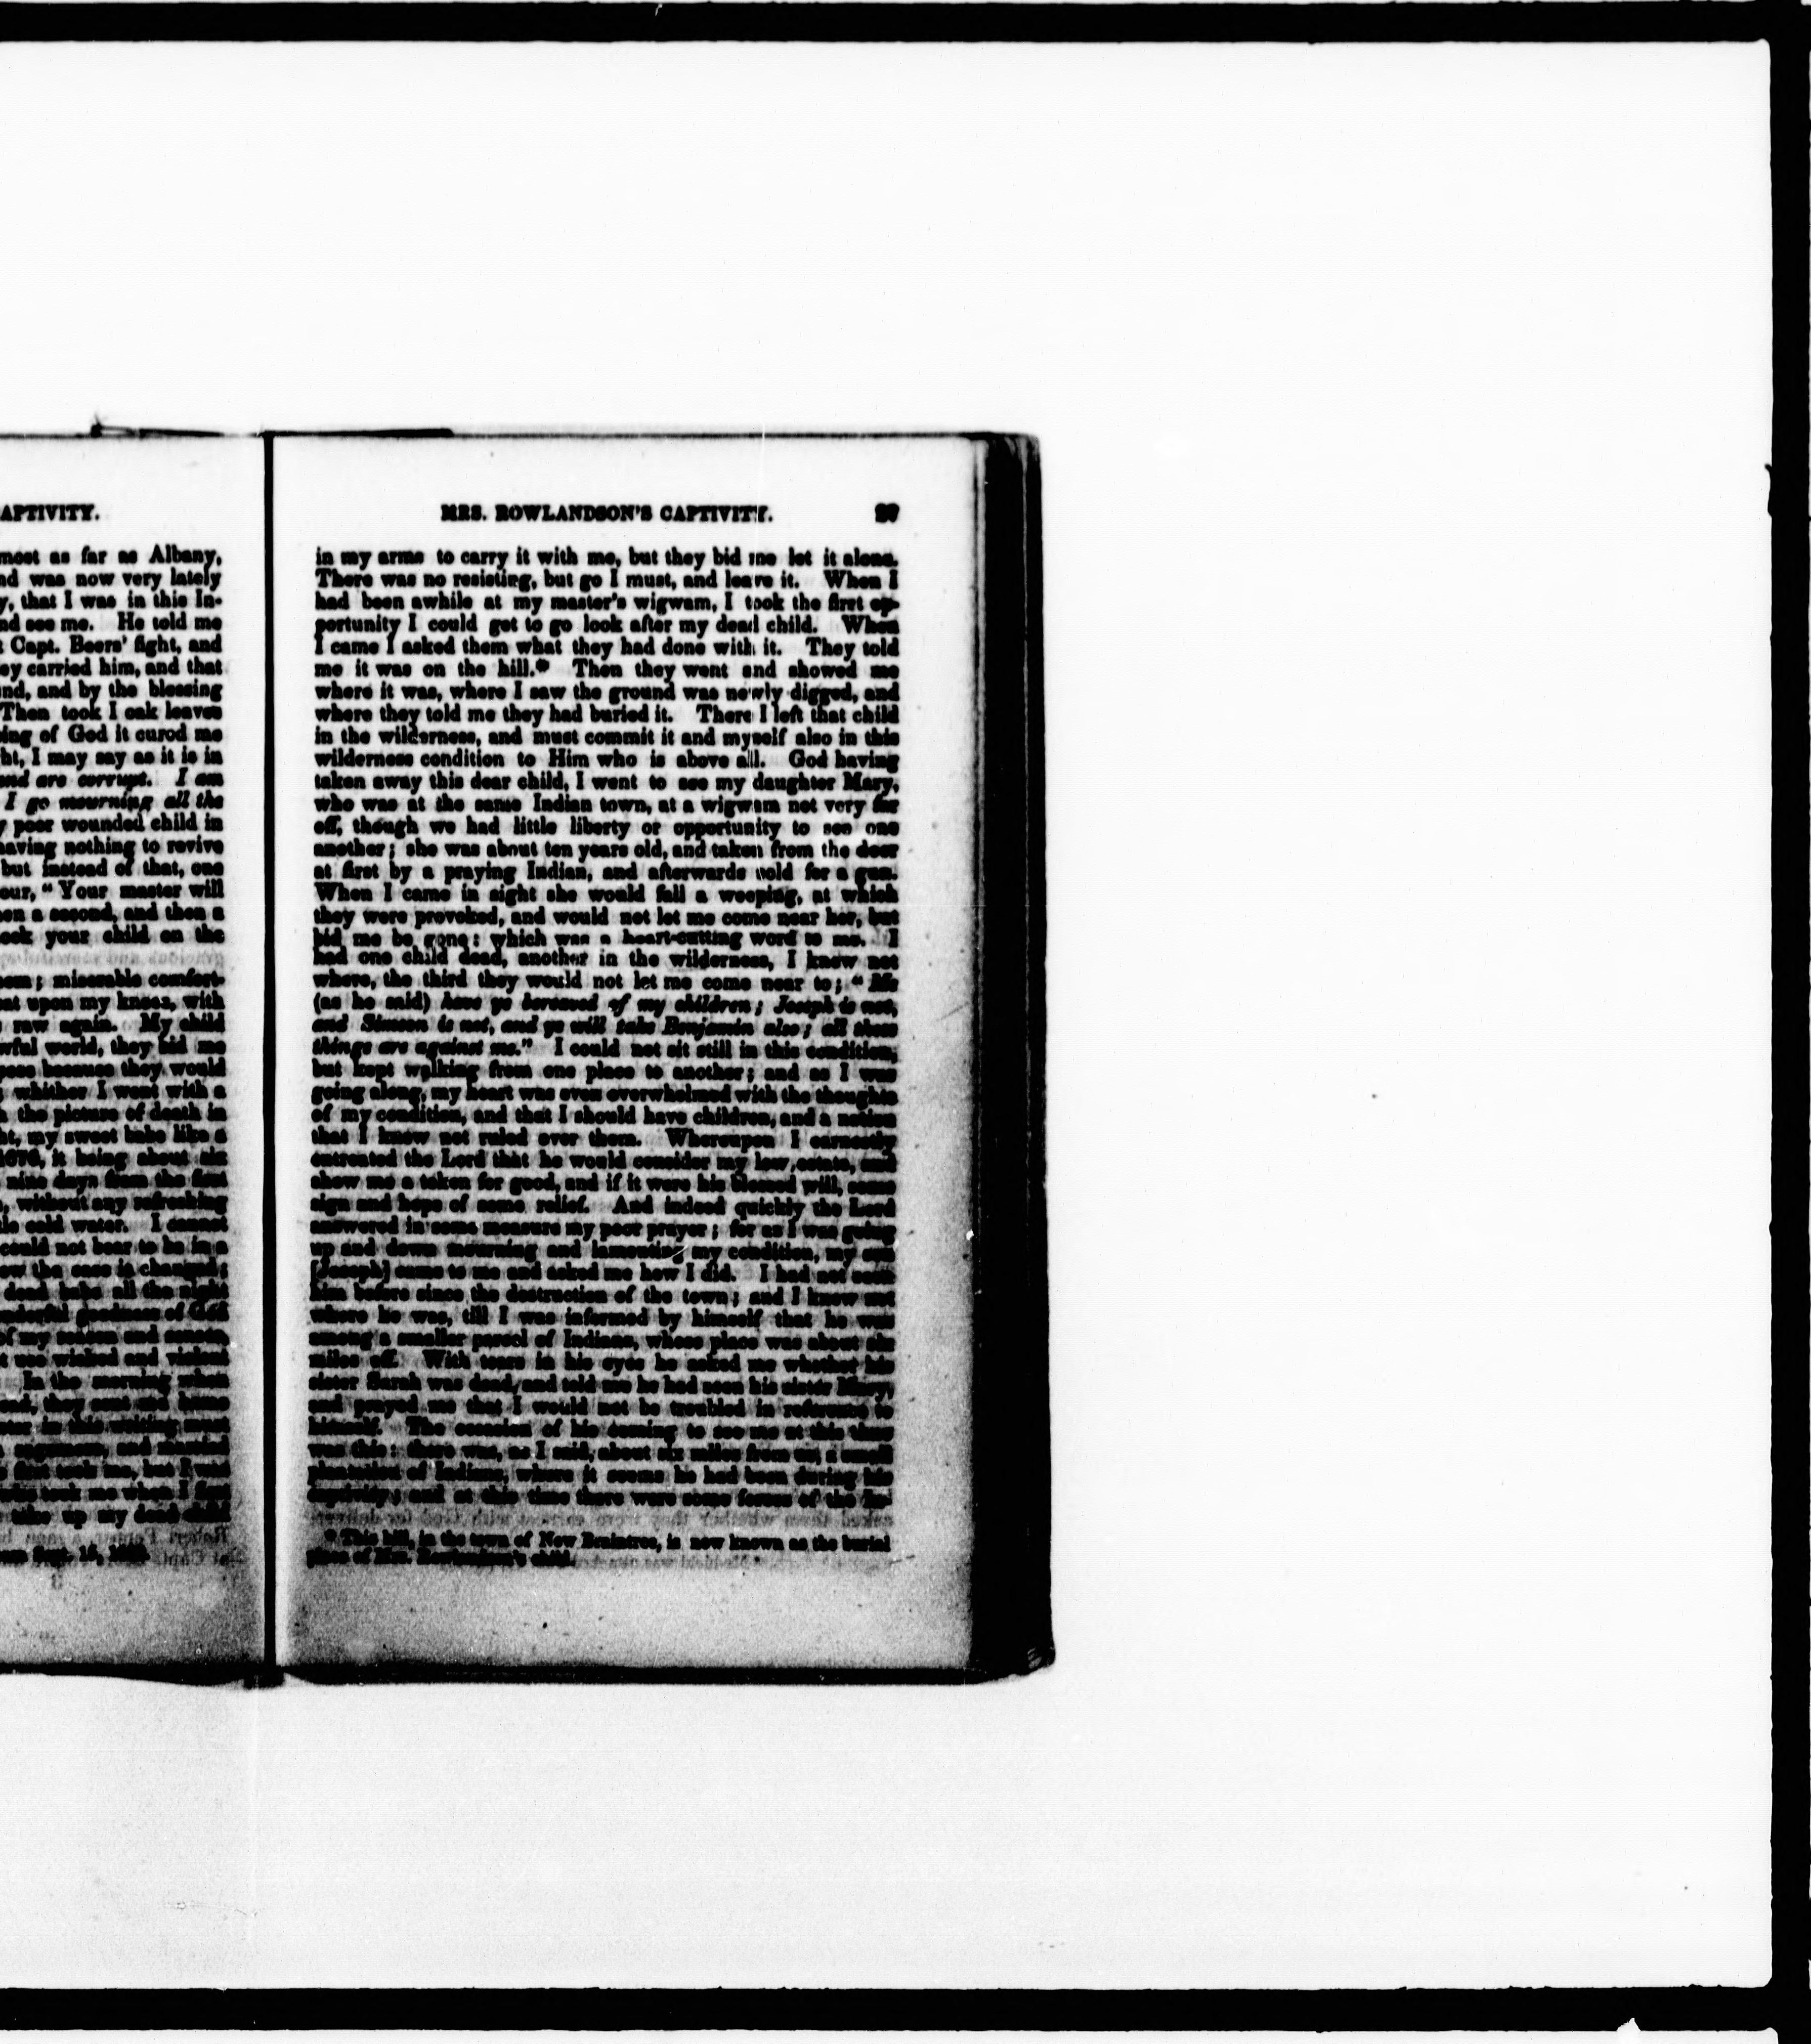 APTIVITY.
most as far as Albany,
nd was now very lately
y, that I was in this In-
nd see me. He told me
t Capt. Beers' fight, and
ey carried him, and that
und, and by the blessing
Then took I oak leaves
sing of God it cured me
ht, I may say as it is in
and are corrupt. I am
I go mourning all the
y poor wounded child in
having nothing to revive
but instead of that, one
our, "Your master will
hen a second, and then a
ock your child on the
em; miserable comfort-
at upon my knees, with
raw again. My child
wful world, they bid me
pose because they would
whither I went with a
the picture of death in
ht, my sweet babe like a
it being about six
nine days from the first
without any refreshing
le cold water. I cannot
could not bear to be in a
ow the case is changed;
dead babe all the night
goodness of God
of my reason and senses,
wicked and violent
In the morning when
take up my dead child
Sept.
MRS. ROWLANDSON'S CAPTIVITY.
in my arms to carry it with me, but they bid me let it alone.
There was no resisting, but go I must, and leave it. When I
had been awhile at my master's wigwam, I took the first op-
portunity I could get to go look after my dead child. When
I came I asked them what they had done with it. They told
me it was on the hill.* Then they went and showed me
where it was, where I saw the ground was newly digged, and
where they told me they had buried it. There I left that child
in the wilderness, and must commit it and myself also in this
wilderness condition to Him who is above all. God having
taken away this dear child, I went to see my daughter Mary,
who was at the same Indian town, at a wigwam not very far
off, though we had little liberty or opportunity to see one
another; she was about ten years old, and taken from the door
at first by a praying Indian, and afterwards sold for a gun.
When I came in sight she would fall a weeping, at which
they were provoked, and would not let me come near her, but
bid me be gone: which was a heart-cutting word to me. I
had one child dead, another in the wilderness, I knew not
where, the third they would not let me come near to; "Me
(as he said) have ye bereaved of my children; Joseph is not,
and Simeon is not, and ye will take Benjamin also; all these
things are against me." I could not sit still in this condition,
but kept walking from one place to another; and as I was
going along, my heart was even overwhelmed with the thoughts
of my condition, and that I should have children, and a nation
that I knew not ruled over them. Whereupon I earnestly
entreated the Lord that he would consider my low estate, and
show me a token for good, and if it were his blessed will, some
sign and hope of some relief. And indeed quickly the Lord
answered in some measure my poor prayer; for as I was going
up and down mourning and lamenting my condition, my son
[Joseph] came to me and asked me how I did. I had not seen
him before since the destruction of the town; and I knew not
where he was, till I was informed by himself that he was
among a smaller parcel of Indians, whose place was about six
miles off. With tears in his eyes he asked me whether his
sister Sarah was dead, and told me he had seen his sister Mary,
and prayed me that I would not be troubled in reference to
himself. The occasion of his coming to see me at this time
was this: there was, as I said, about six miles from us, a small
plantation of Indians, where it seems he had been during his
captivity; and at this time there were some forces of the In-
* This hill, in the town of New Braintree, is now known as the burial
place of Mrs. Rowlandson's child.